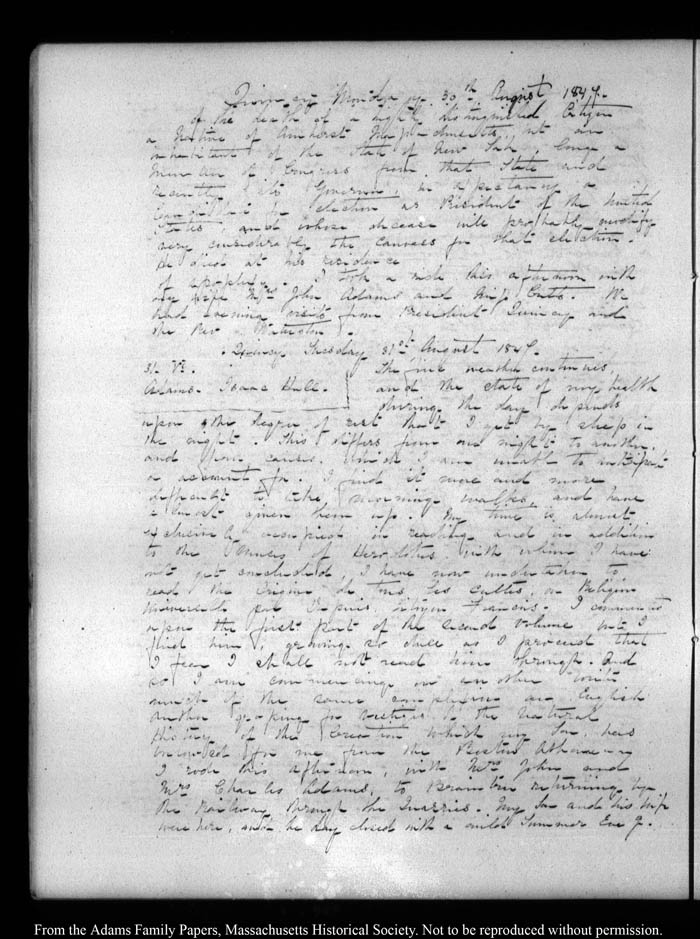 Quincy Monday 30th August 1847.
of the death of a highly distinguished Citizen
a Native of Amherst Massachusetts, but an
inhabitant of the State of New York, long a
Member of Congress from that State and
recently its Governor, in expectancy a
Candidate for election as President of the United
States, and whose decease will probably modify
very considerably the canvass for that election.
He died at his residence
of apoplexy. I took a ride this afternoon with
my wife Mrs John Adams and Miss Cutts. We
had evening visits from President Quincy and
the Rev
Quincy Tuesday 31st August 1847.
31. V.
The fine weather continues,
Adams. Isaac Hull.
and the state of my health
during the day depends
upon the degree of rest that I get by sleep in
the night. This differs from one night to another
and from causes which I am unable to
or account for. I find it more and more
difficult to take morning walks, and have
almost given them up. My time is almost
exclusively occupied in reading and in addition
to the Muses of Herodotus, with whom I have
not yet concluded, I have now undertaken to
read the Origine de tous les Cultes, ou Religion
Universelle par Dupuis, Citoyen Francois. I commenced
upon the first part of the second volume but I
find him growing so dull as I proceed that
I fear I shall not read him through. And
so I am commencing on another work
much of the same complexion an English
author groping for vestiges of the Natural
History of the Creation which my Son has
for me from the Boston Athenaeum
I rode this afternoon, with Mrs John and
Mrs Charles Adams, to Braintree returning by
the Railway through the Quarries. My Son and his wife
were here, and the day closed with a mild Summer Eve g.
From the Adams Family Papers, Massachusetts Historical Society. Not to be reproduced without permission.